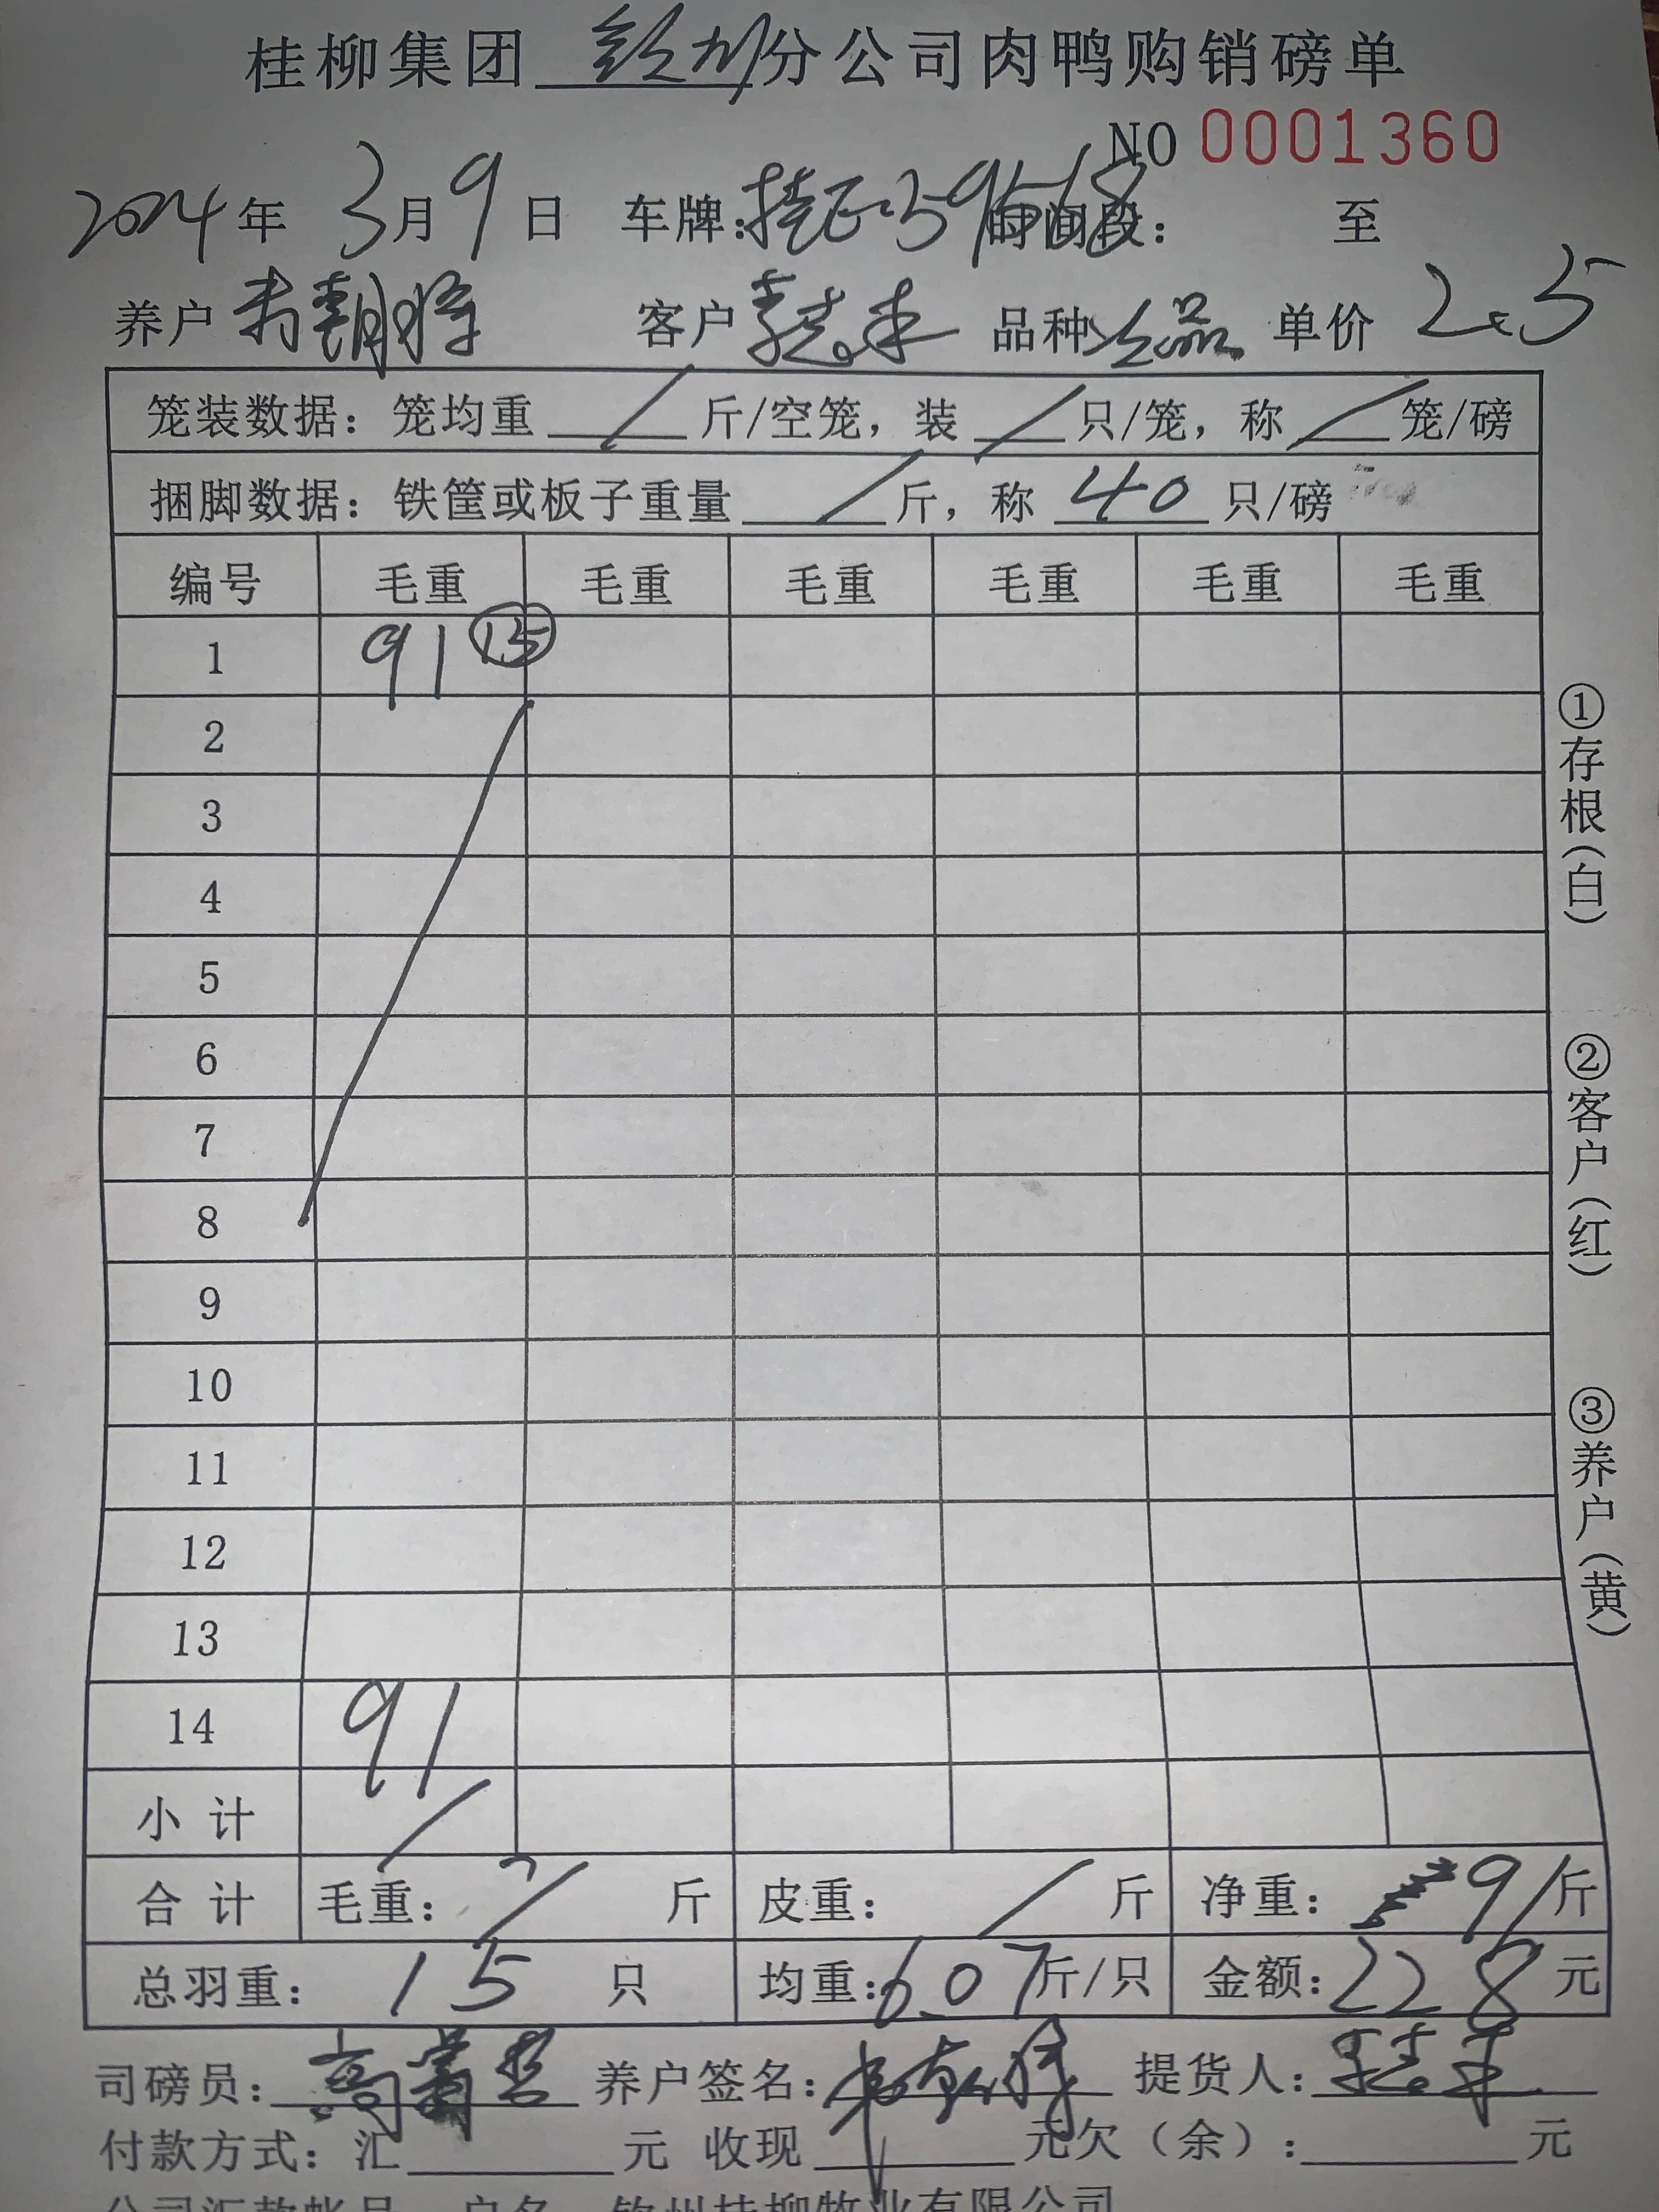 桂柳集团 钦州 分公司肉鸭购销磅单
NO 0001360
2024年 3月9日 车牌: 时间段: 至
养户 客户 品种 单价 2.5
笼装数据: 笼均重 / 斤/空笼, 装 / 只/笼, 称 / 笼/磅
捆脚数据: 铁筐或板子重量 / 斤, 称 40 只/磅
编号 毛重 毛重 毛重 毛重 毛重 毛重
1 91 ⑮
2
3
4
5
6
7
8
9
10
11
12
13
14 91
小 计 /
合 计 毛重: / 斤 皮重: / 斤 净重: 91斤
总羽重: 15 只 均重: 6.07斤/只 金额: 228 元
司磅员: 养户签名: 提货人:
付款方式: 汇 元 收现 元欠(余): 元
公司汇款帐号 户名 钦州桂柳牧业有限公司
①存根(白)
②客户(红)
③养户(黄)